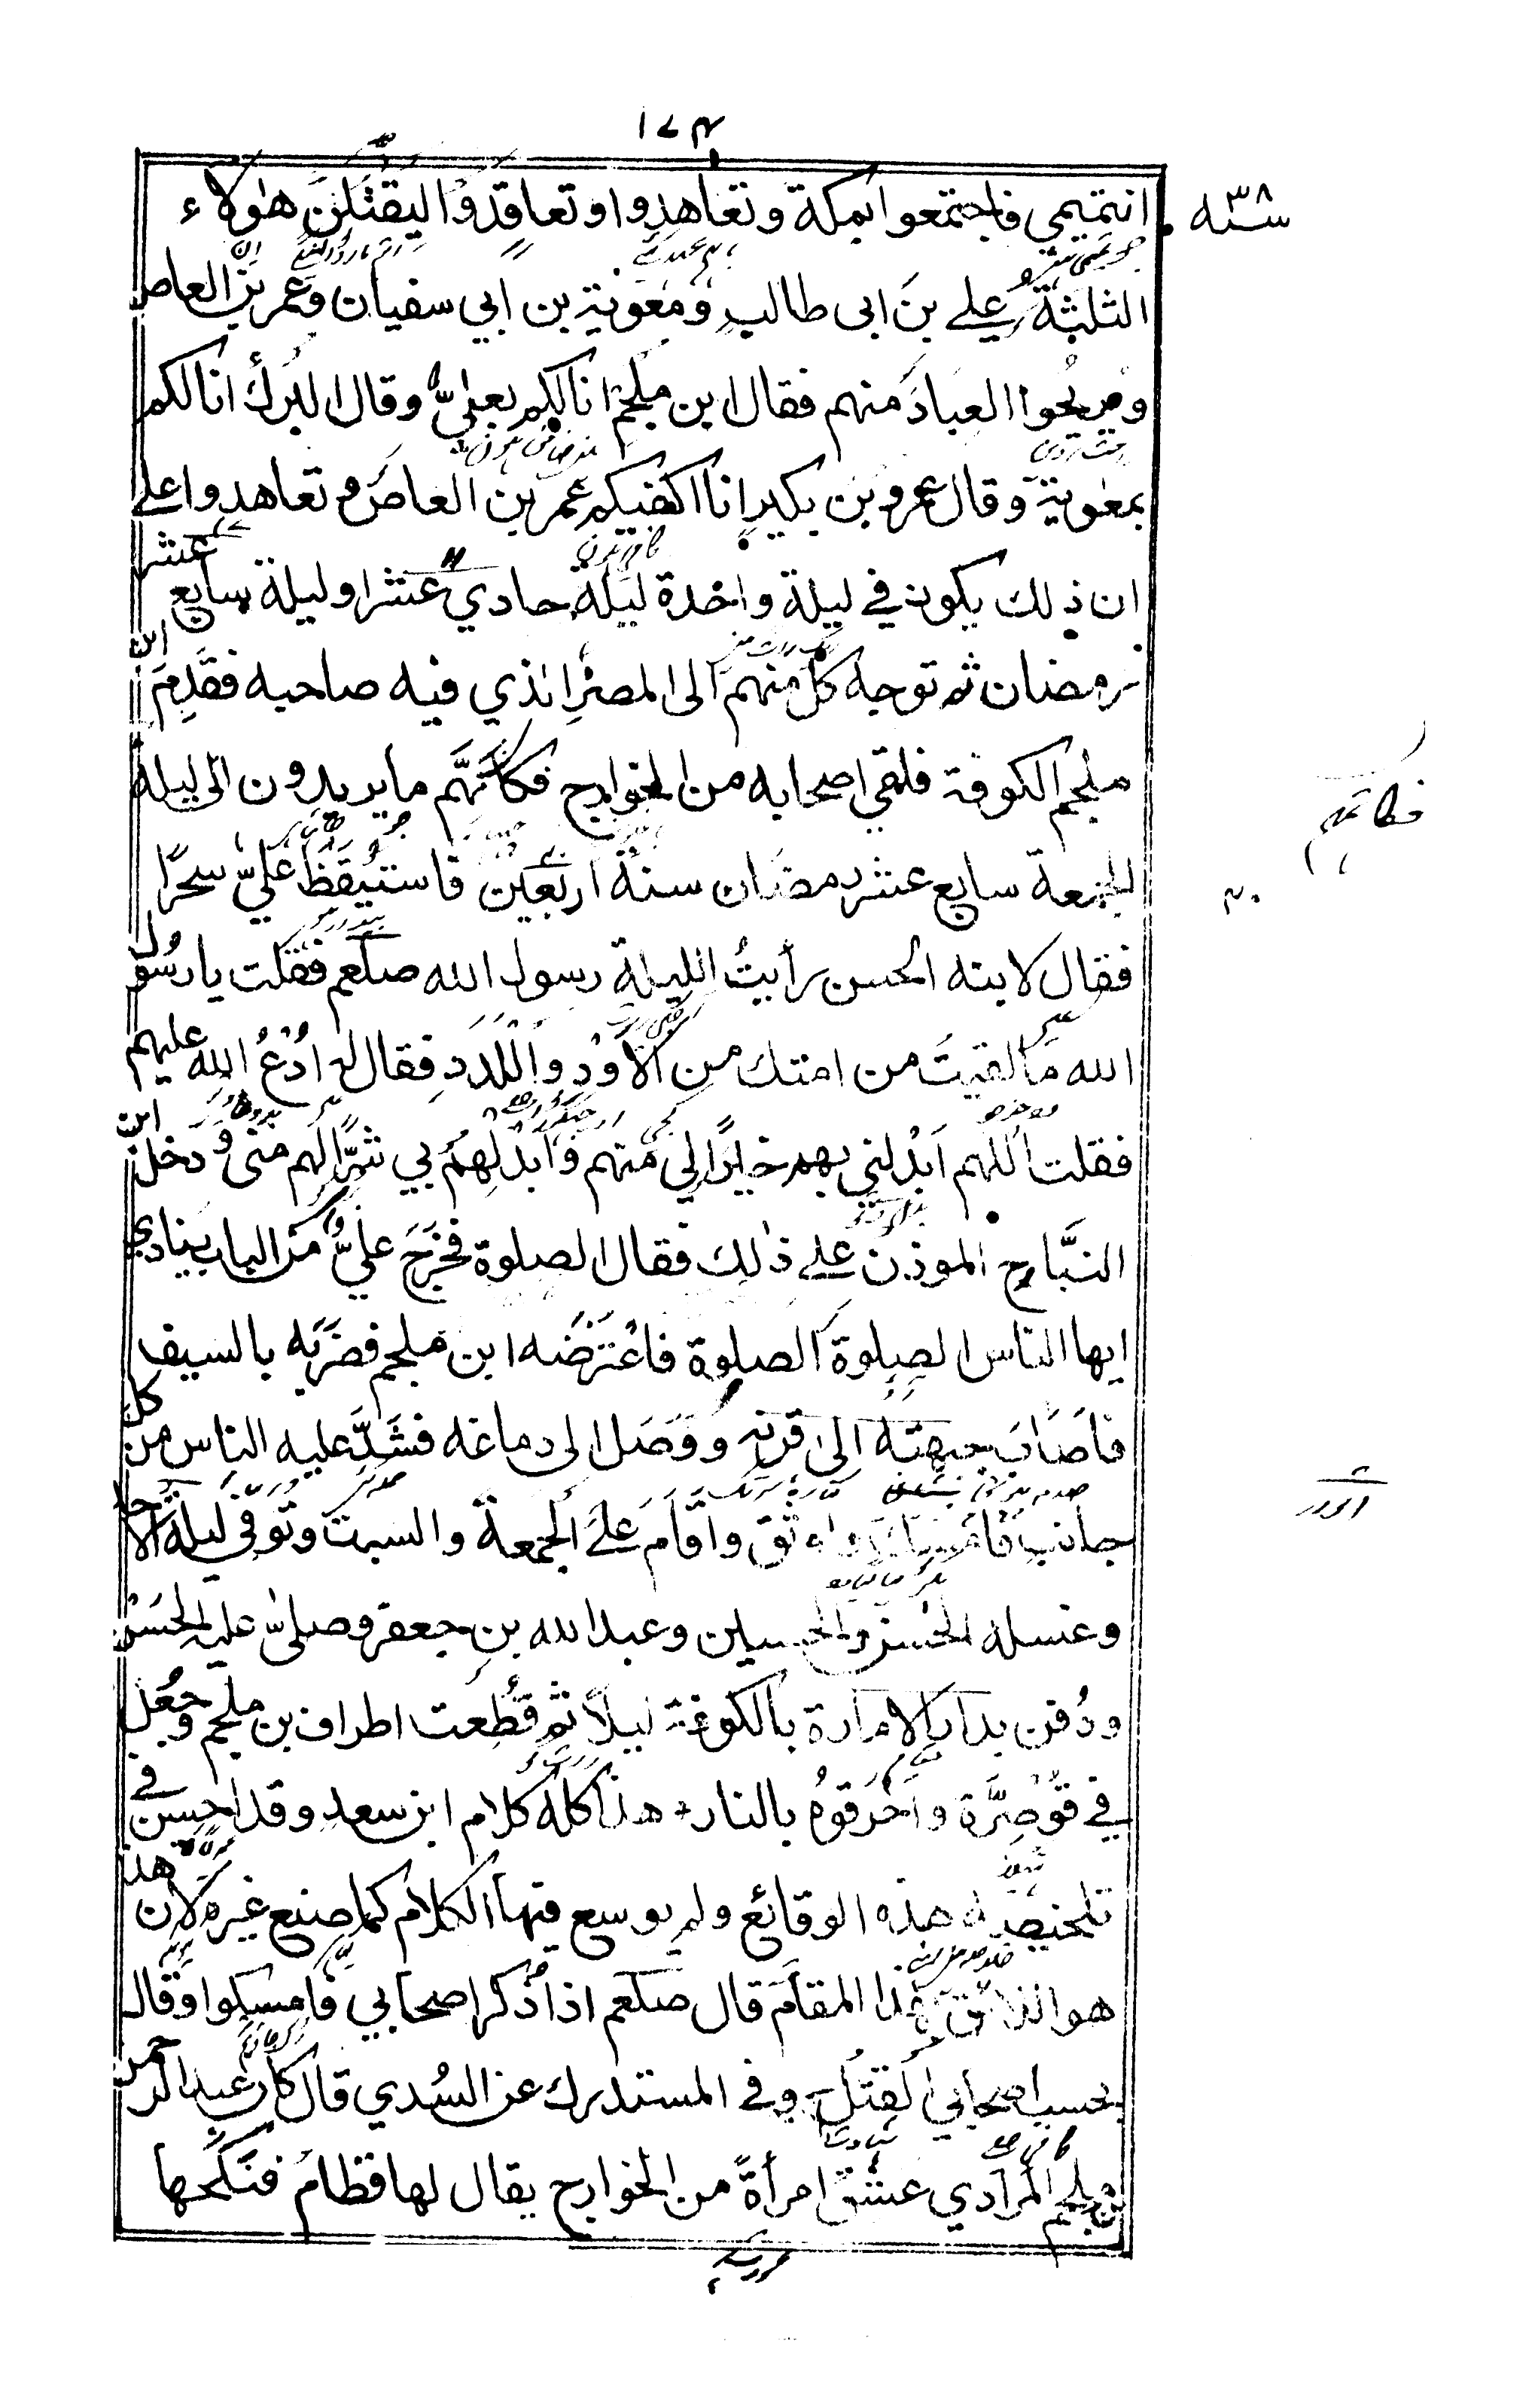 ١٧٣
سنه ٣٨
التميمي فاجتمعوا بمكة وتعاهدوا وتعاقدوا ليقتلن هؤلاء
الثلثة علي بن ابى طالب ومعوية بن ابي سفيان وعمر بن العاص
ويريحوا العباد منهم فقال ابن ملجم انا لكم بعليّ وقال البرك انا لكم
بمعوية وقال عمرو بن بكير انا اكفيكم عمر بن العاص وتعاهدوا على
ان ذلك يكون في ليلة واحدة ليلة حادي عشر او ليلة سابع عشر
رمضان ثم توجه كل منهم الى المصر الذي فيه صاحبه فقدم ابن
ملجم الكوفة فلقي اصحابه من الخوارج فكاتمهم ما يريدون الى ليلة
الجمعة سابع عشر رمضان سنة اربعين فاستيقظ عليّ سحرًا
فقال لابنه الحسن رأيتُ الليلة رسول الله صلعم فقلت يا رسول
الله ما لقيت من امتك من الأود واللدد فقال لي ادع الله عليهم
فقلت اللهم ابدلني بهم خيرًا لي منهم وابدلهم بي شرًّا لهم منى ودخل ابن
النبّاح الموذن على ذلك فقال الصلوة فخرج عليّ من الباب ينادي
ايها الناس الصلوة الصلوة فاعترضه ابن ملجم فضربه بالسيف
فاصاب جبهته الى قرنه ووصل الى دماغه فشدّ عليه الناس من كل
جانب فامسك واوثق واقام على الجمعة والسبت وتوفي ليلة الاحد
وغسله الحسن والحسين وعبد الله بن جعفر وصلى عليه الحسن
ودُفن بدار الامارة بالكوفة ليلاً ثم قُطعت اطراف بن ملجم وجُعل
في قوصرّة واحرقوه بالنار هذا كله كلام ابن سعد وقد احسن في
تلخيصه هذه الوقائع ولم يوسع فيها الكلام كما صنع غيره لان هذا
هو اللائق بهذا المقام قال صلعم اذا ذكر اصحابي فامسكوا وقال
بحسب اصحابي القتل وفي المستدرك عن السُدي قال كان عبد الرحمن
بن ملجم المرادي عشق امرأةً من الخوارج يقال لها قظام فنكحها